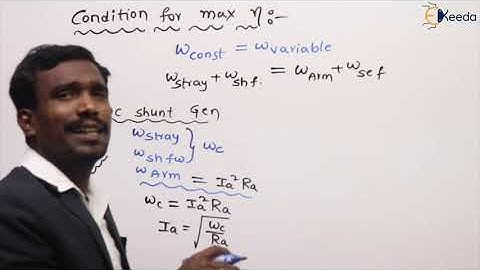 Condition for max η:-
Ekeeda
W const = W variable
W stray + W shf. = W Arm + W sef
c shunt Gen
W stray } Wc
W shfw
W Arm = Ia² Ra
Wc = Ia² Ra
Ia = √(Wc/Ra)